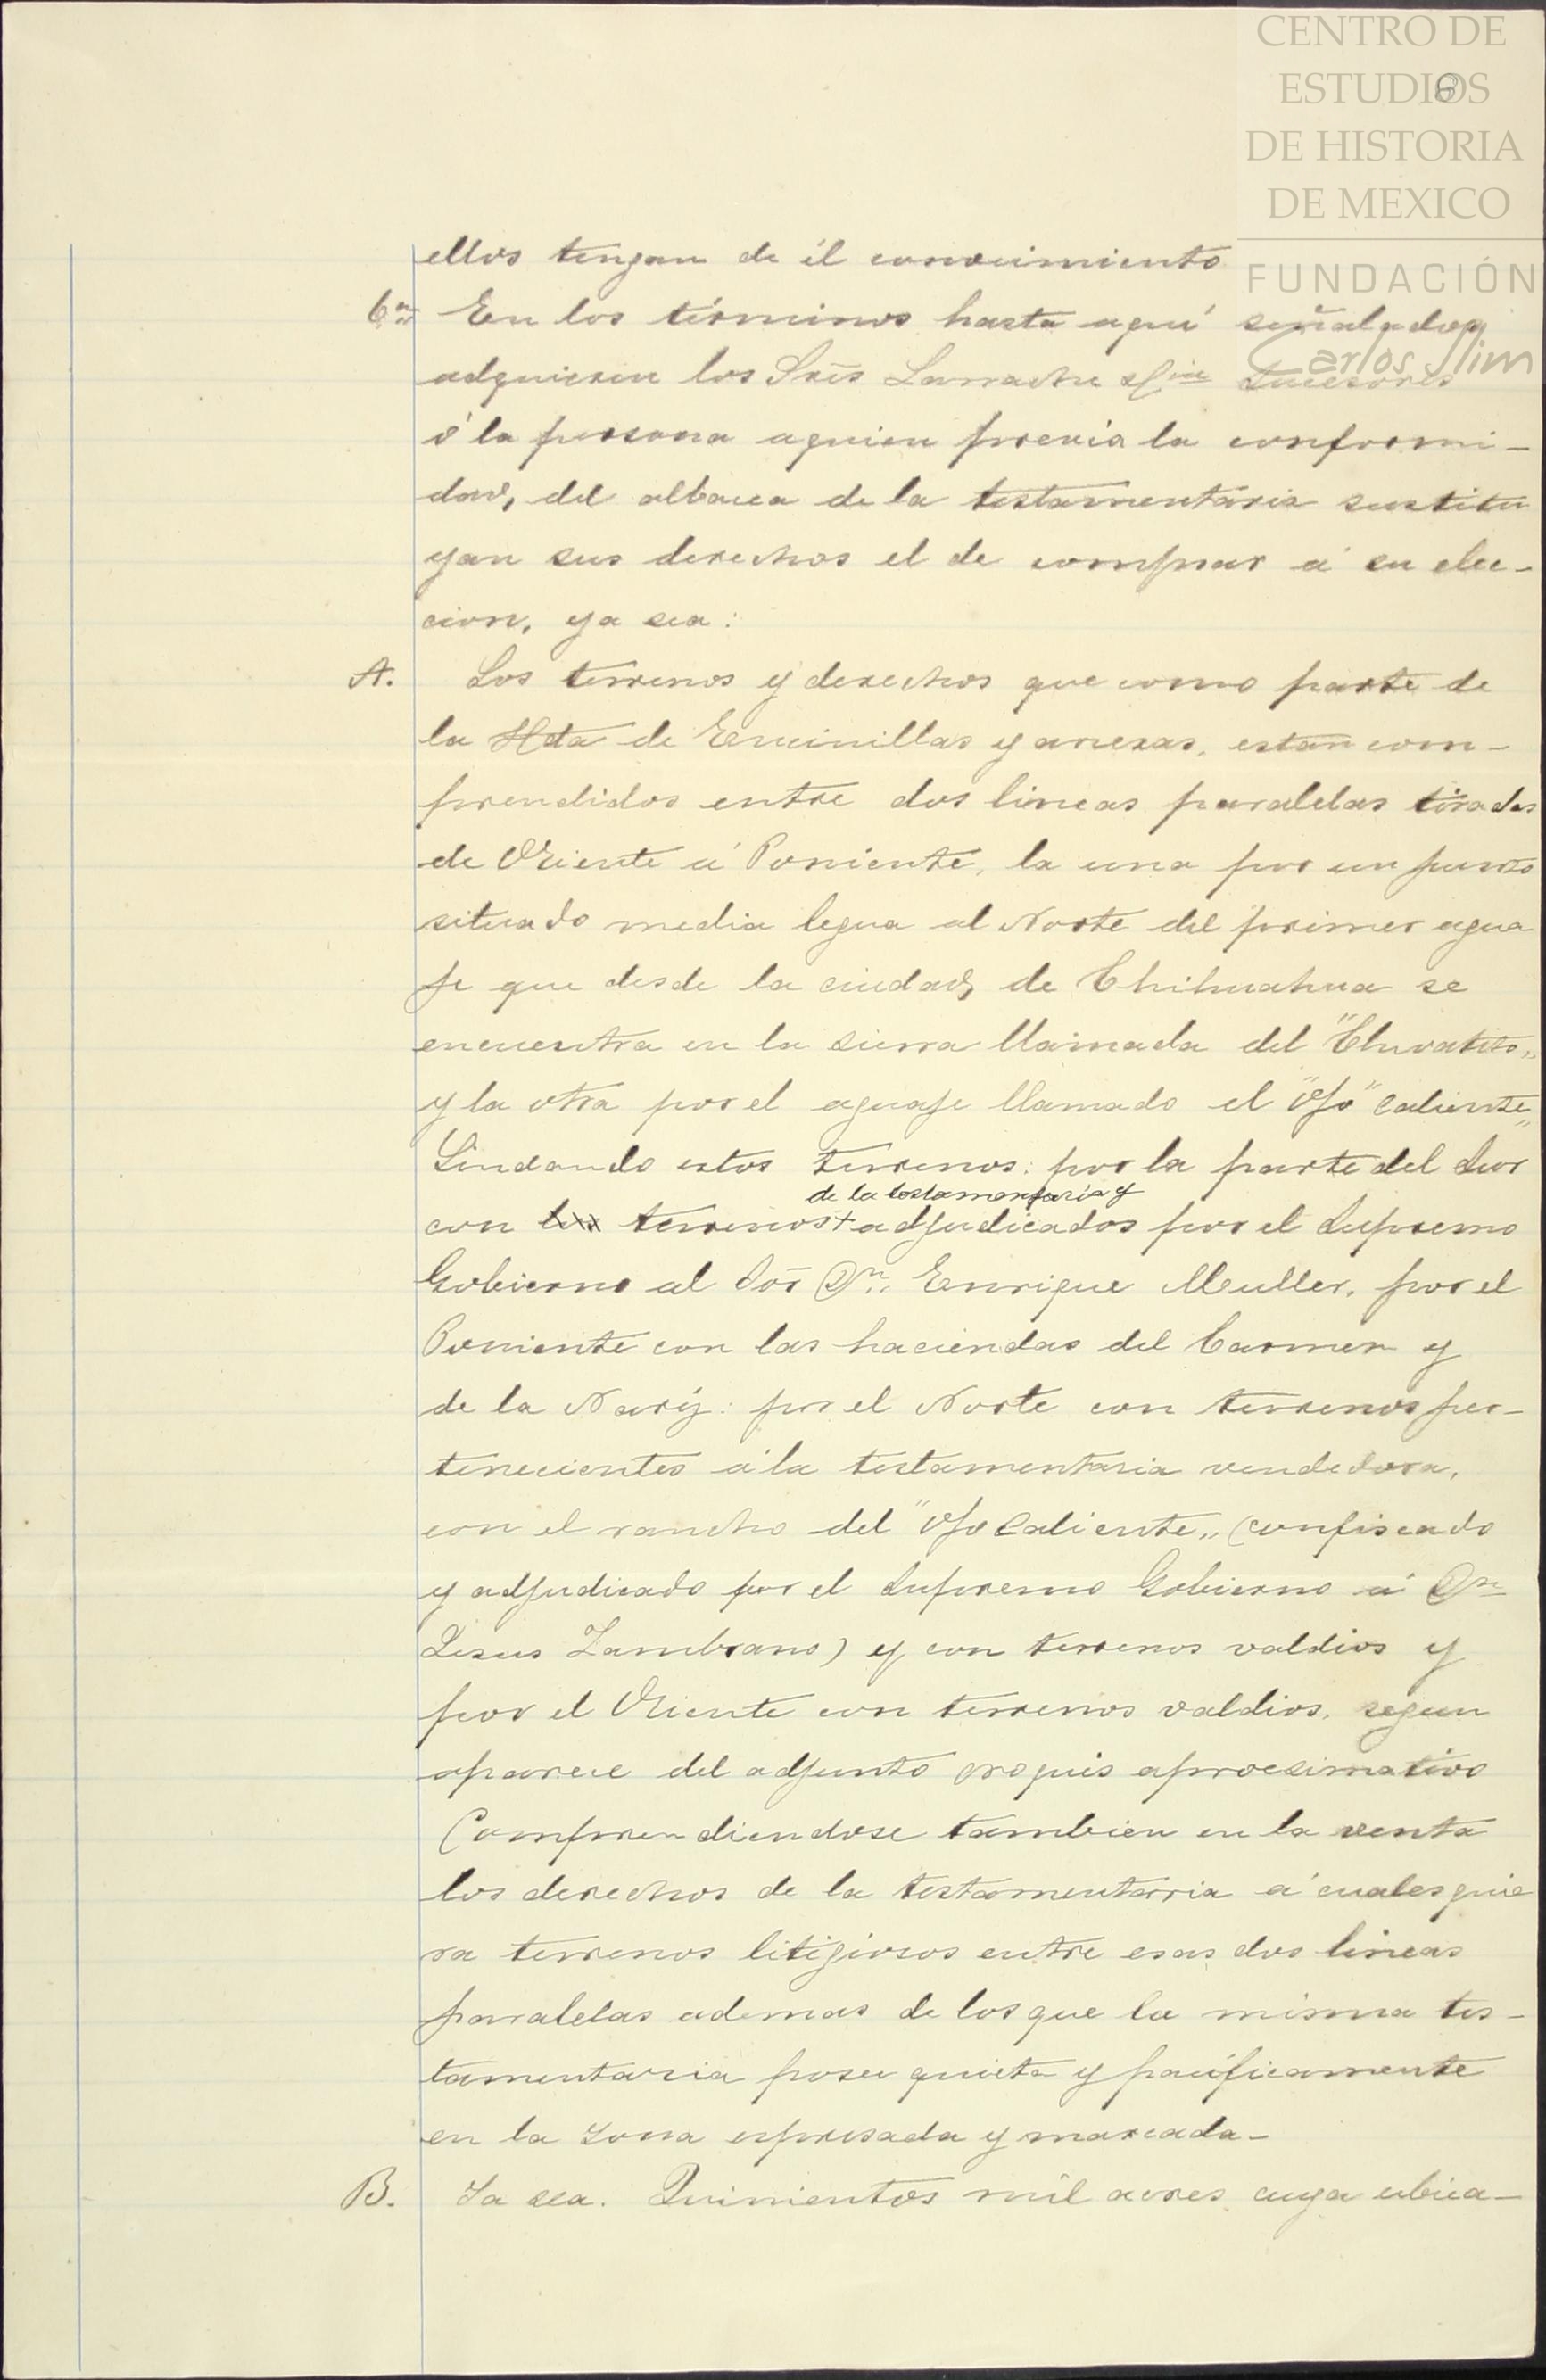 CENTRO DE
ESTUDIOS
DE HISTORIA
DE MEXICO
FUNDACIÓN
Carlos Slim
8
ellos tengan de él conocimiento
6ª En los términos hasta aquí señalados
adquieren los Sres Larrache y Cia Sucesores
ó la persona aquien previa la conformi-
dad, del albacea de la testamentaria sustitu
yan sus derechos el de comprar á su elec-
cion, ya sea:
A. Los terrenos y derechos que como parte de
la Hda de Encinillas y anexas, estan com-
prendidos entre dos lineas paralelas tiradas
de Oriente á Poniente, la una por un punto
situado media legua al Norte del primer agua
je que desde la ciudad, de Chihuahua se
encuentra en la sierra llamada del "Chivatito„
y la otra por el aguaje llamado el "Ojo" Caliente„
Lindando estos terrenos: por la parte del Sur
de la testamentaria y
con los terrenos + adjudicados por el Supremo
Gobierno al Sor Dn. Enrique Muller, por el
Poniente con las haciendas del Carmen y
de la Nariz: por el Norte con terrenos per-
tenecientes á la testamentaria vendedora,
con el rancho del "Ojo Caliente„ (confiscado
y adjudicado por el Supremo Gobierno á Dn
Jesus Zambrano) y con terrenos valdios y
por el Oriente con terrenos valdios, segun
aparece del adjunto croquis aprocsimativo
Comprendiendose tambien en la venta
los derechos de la testamentarria á cualesquie
ra terrenos litigiosos entre esas dos lineas
paralelas ademas de los que la misma tes-
tamentaria posee quieta y pacíficamente
en la zona espresada y marcada-
B. Ya sea. Quinientos mil acres cuya ubica-